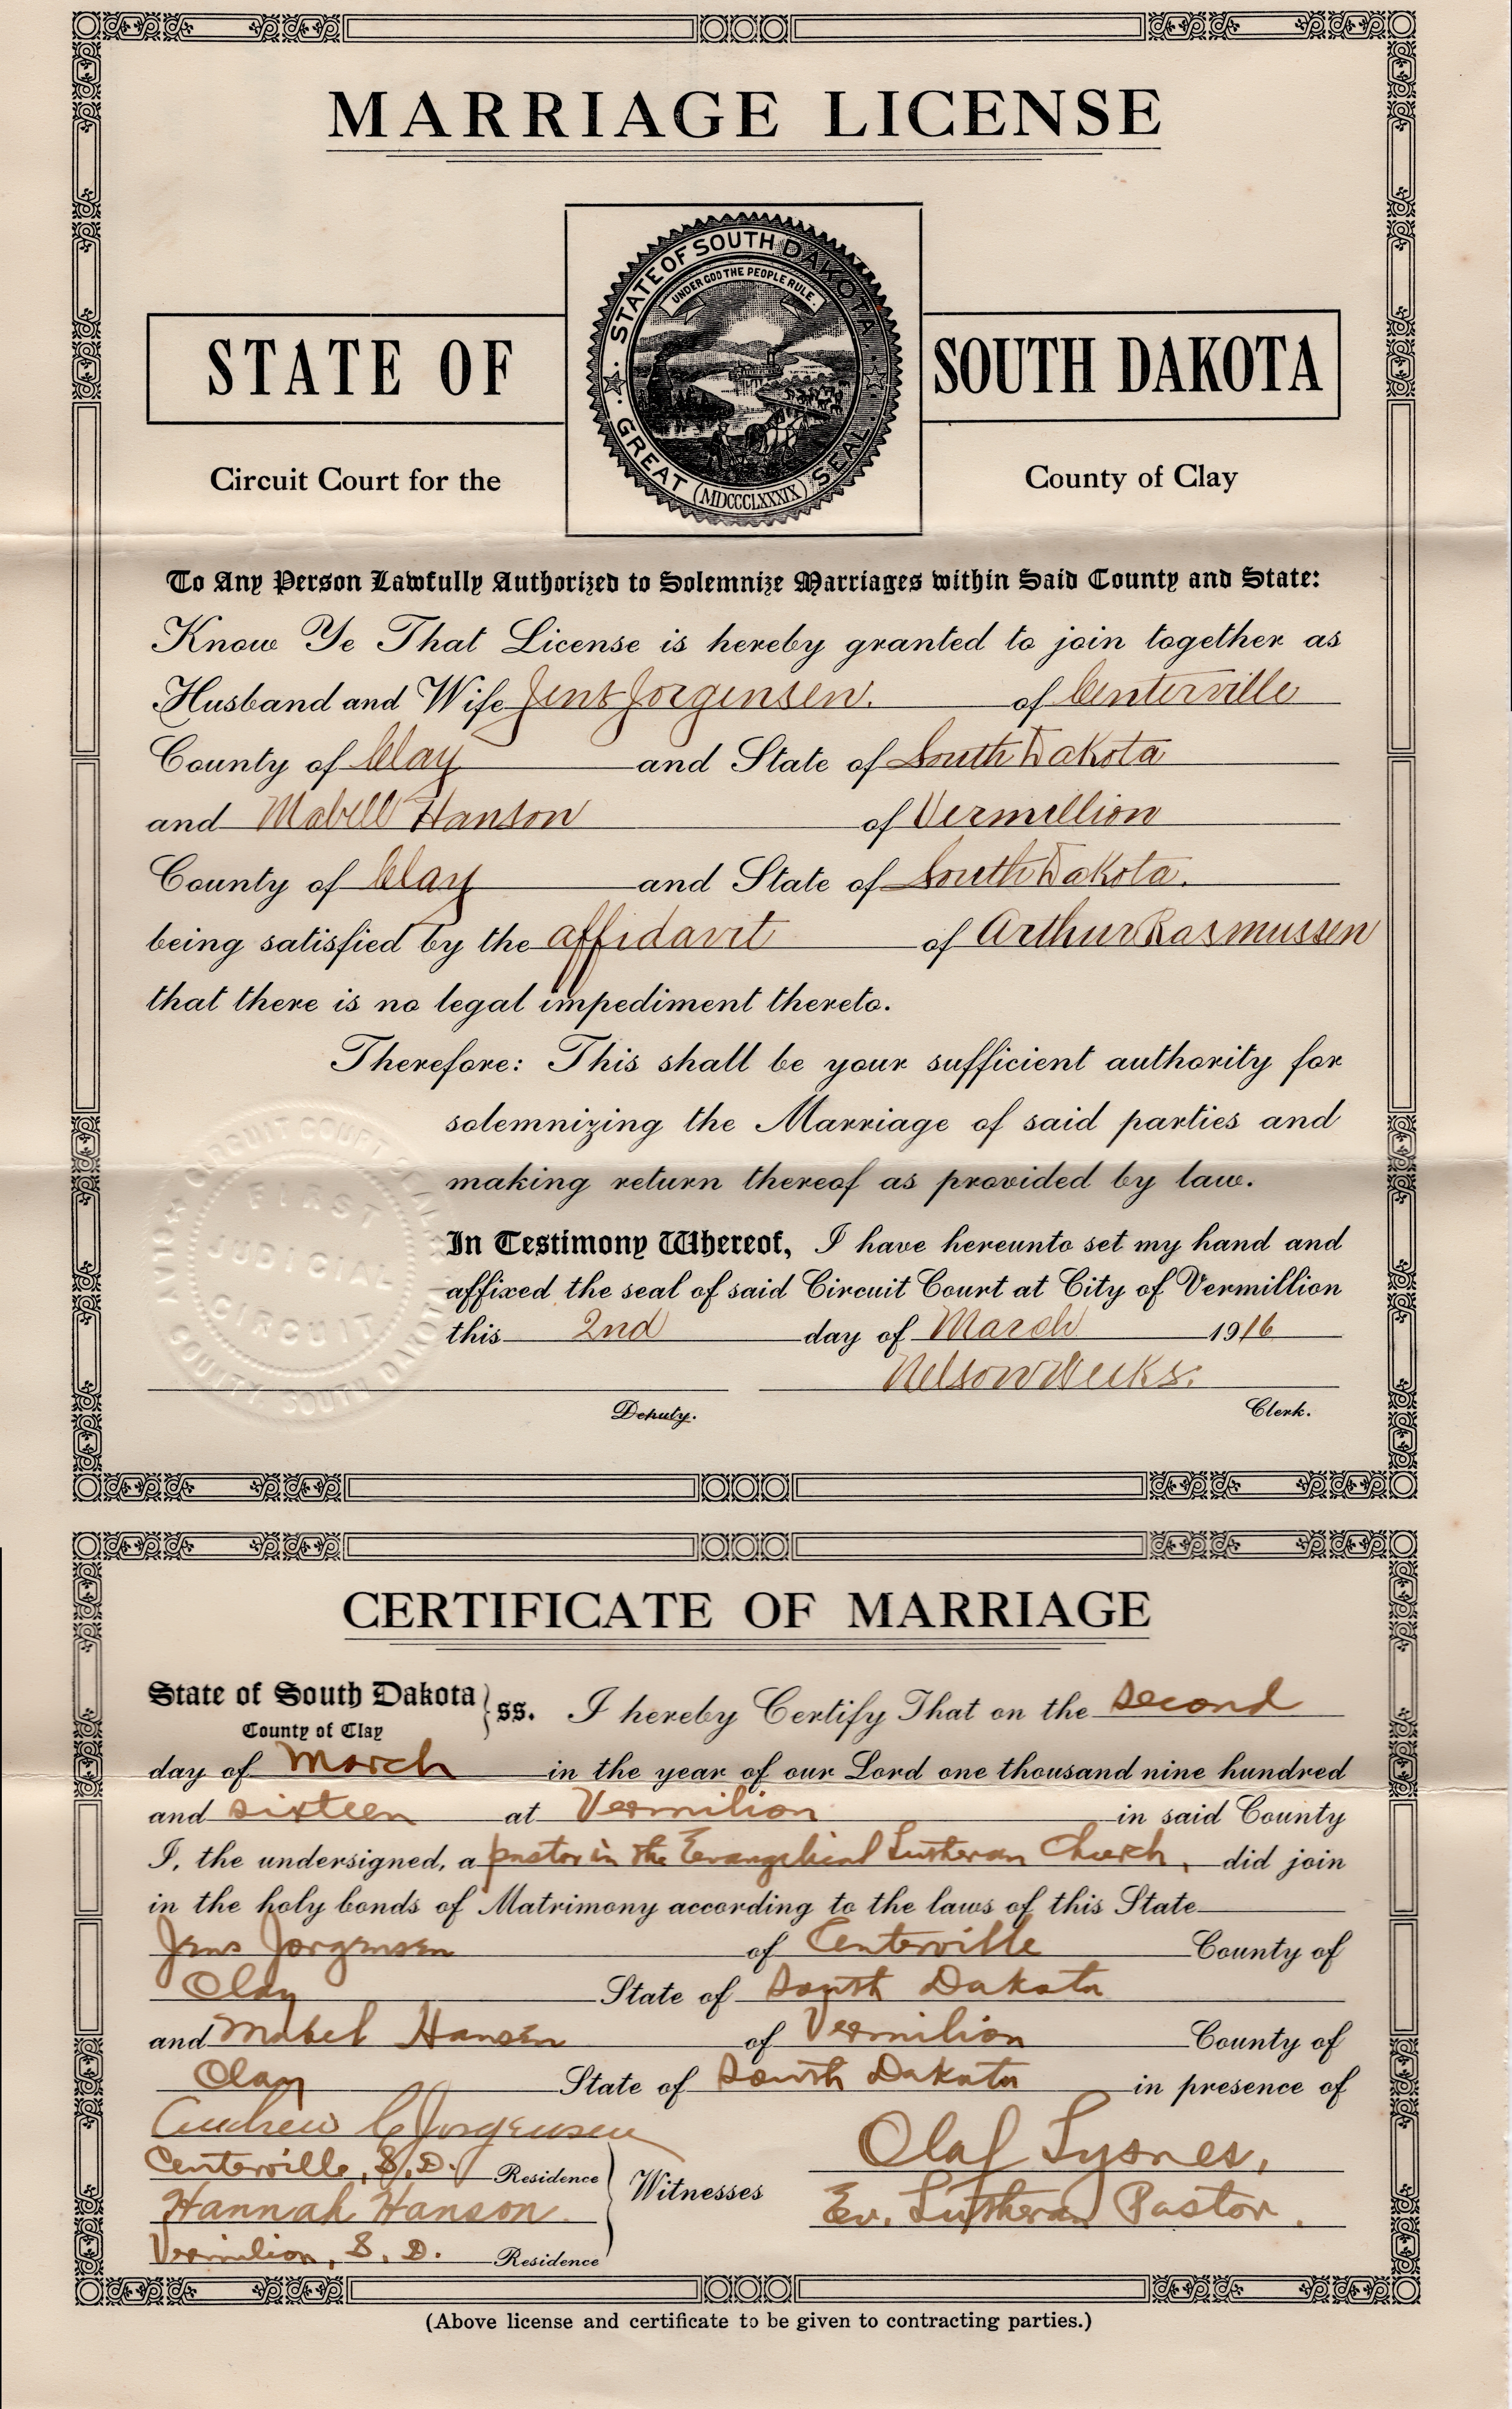 MARRIAGE LICENSE
STATE OF SOUTH DAKOTA
GREAT SEAL
UNDER GOD THE PEOPLE RULE.
MDCCCLXXXIX
STATE OF
SOUTH DAKOTA
Circuit Court for the
County of Clay
To Any Person Lawfully Authorized to Solemnize Marriages within Said County and State:
Know Ye That License is hereby granted to join together as
Husband and Wife Jens Jorgensen. of Centerville
County of Clay and State of South Dakota
and Mabell Hanson of Vermillion
County of Clay and State of South Dakota.
being satisfied by the affidavit of Arthur Rasmussen
that there is no legal impediment thereto.
Therefore: This shall be your sufficient authority for
solemnizing the Marriage of said parties and
making return thereof as provided by law.
CIRCUIT COURT SEAL
FIRST
JUDICIAL
CIRCUIT
COUNTY SOUTH DAKOTA
In Testimony Whereof, I have hereunto set my hand and
affixed the seal of said Circuit Court at City of Vermillion
this 2nd day of March 1916
Nelson Weeks.
Deputy. Clerk.
CERTIFICATE OF MARRIAGE
State of South Dakota } ss. I hereby Certify That on the second
County of Clay
day of March in the year of our Lord one thousand nine hundred
and sixteen at Vermilion in said County
I, the undersigned, a pastor in the Evangelical Lutheran Church, did join
in the holy bonds of Matrimony according to the laws of this State
Jens Jorgensen of Centerville County of
Clay State of South Dakota
and Mabel Hansen of Vermilion County of
Clay State of South Dakota in presence of
Andrew C Jorgensen
Centerville, S. D. Residence
Hannah Hanson.
Vermilion, S. D. Residence
Witnesses
Olaf Lysnes,
Ev. Lutheran Pastor.
(Above license and certificate to be given to contracting parties.)